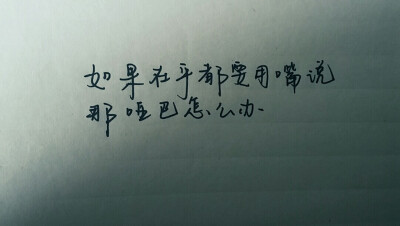 如果在乎都要用嘴说
那哑巴怎么办.